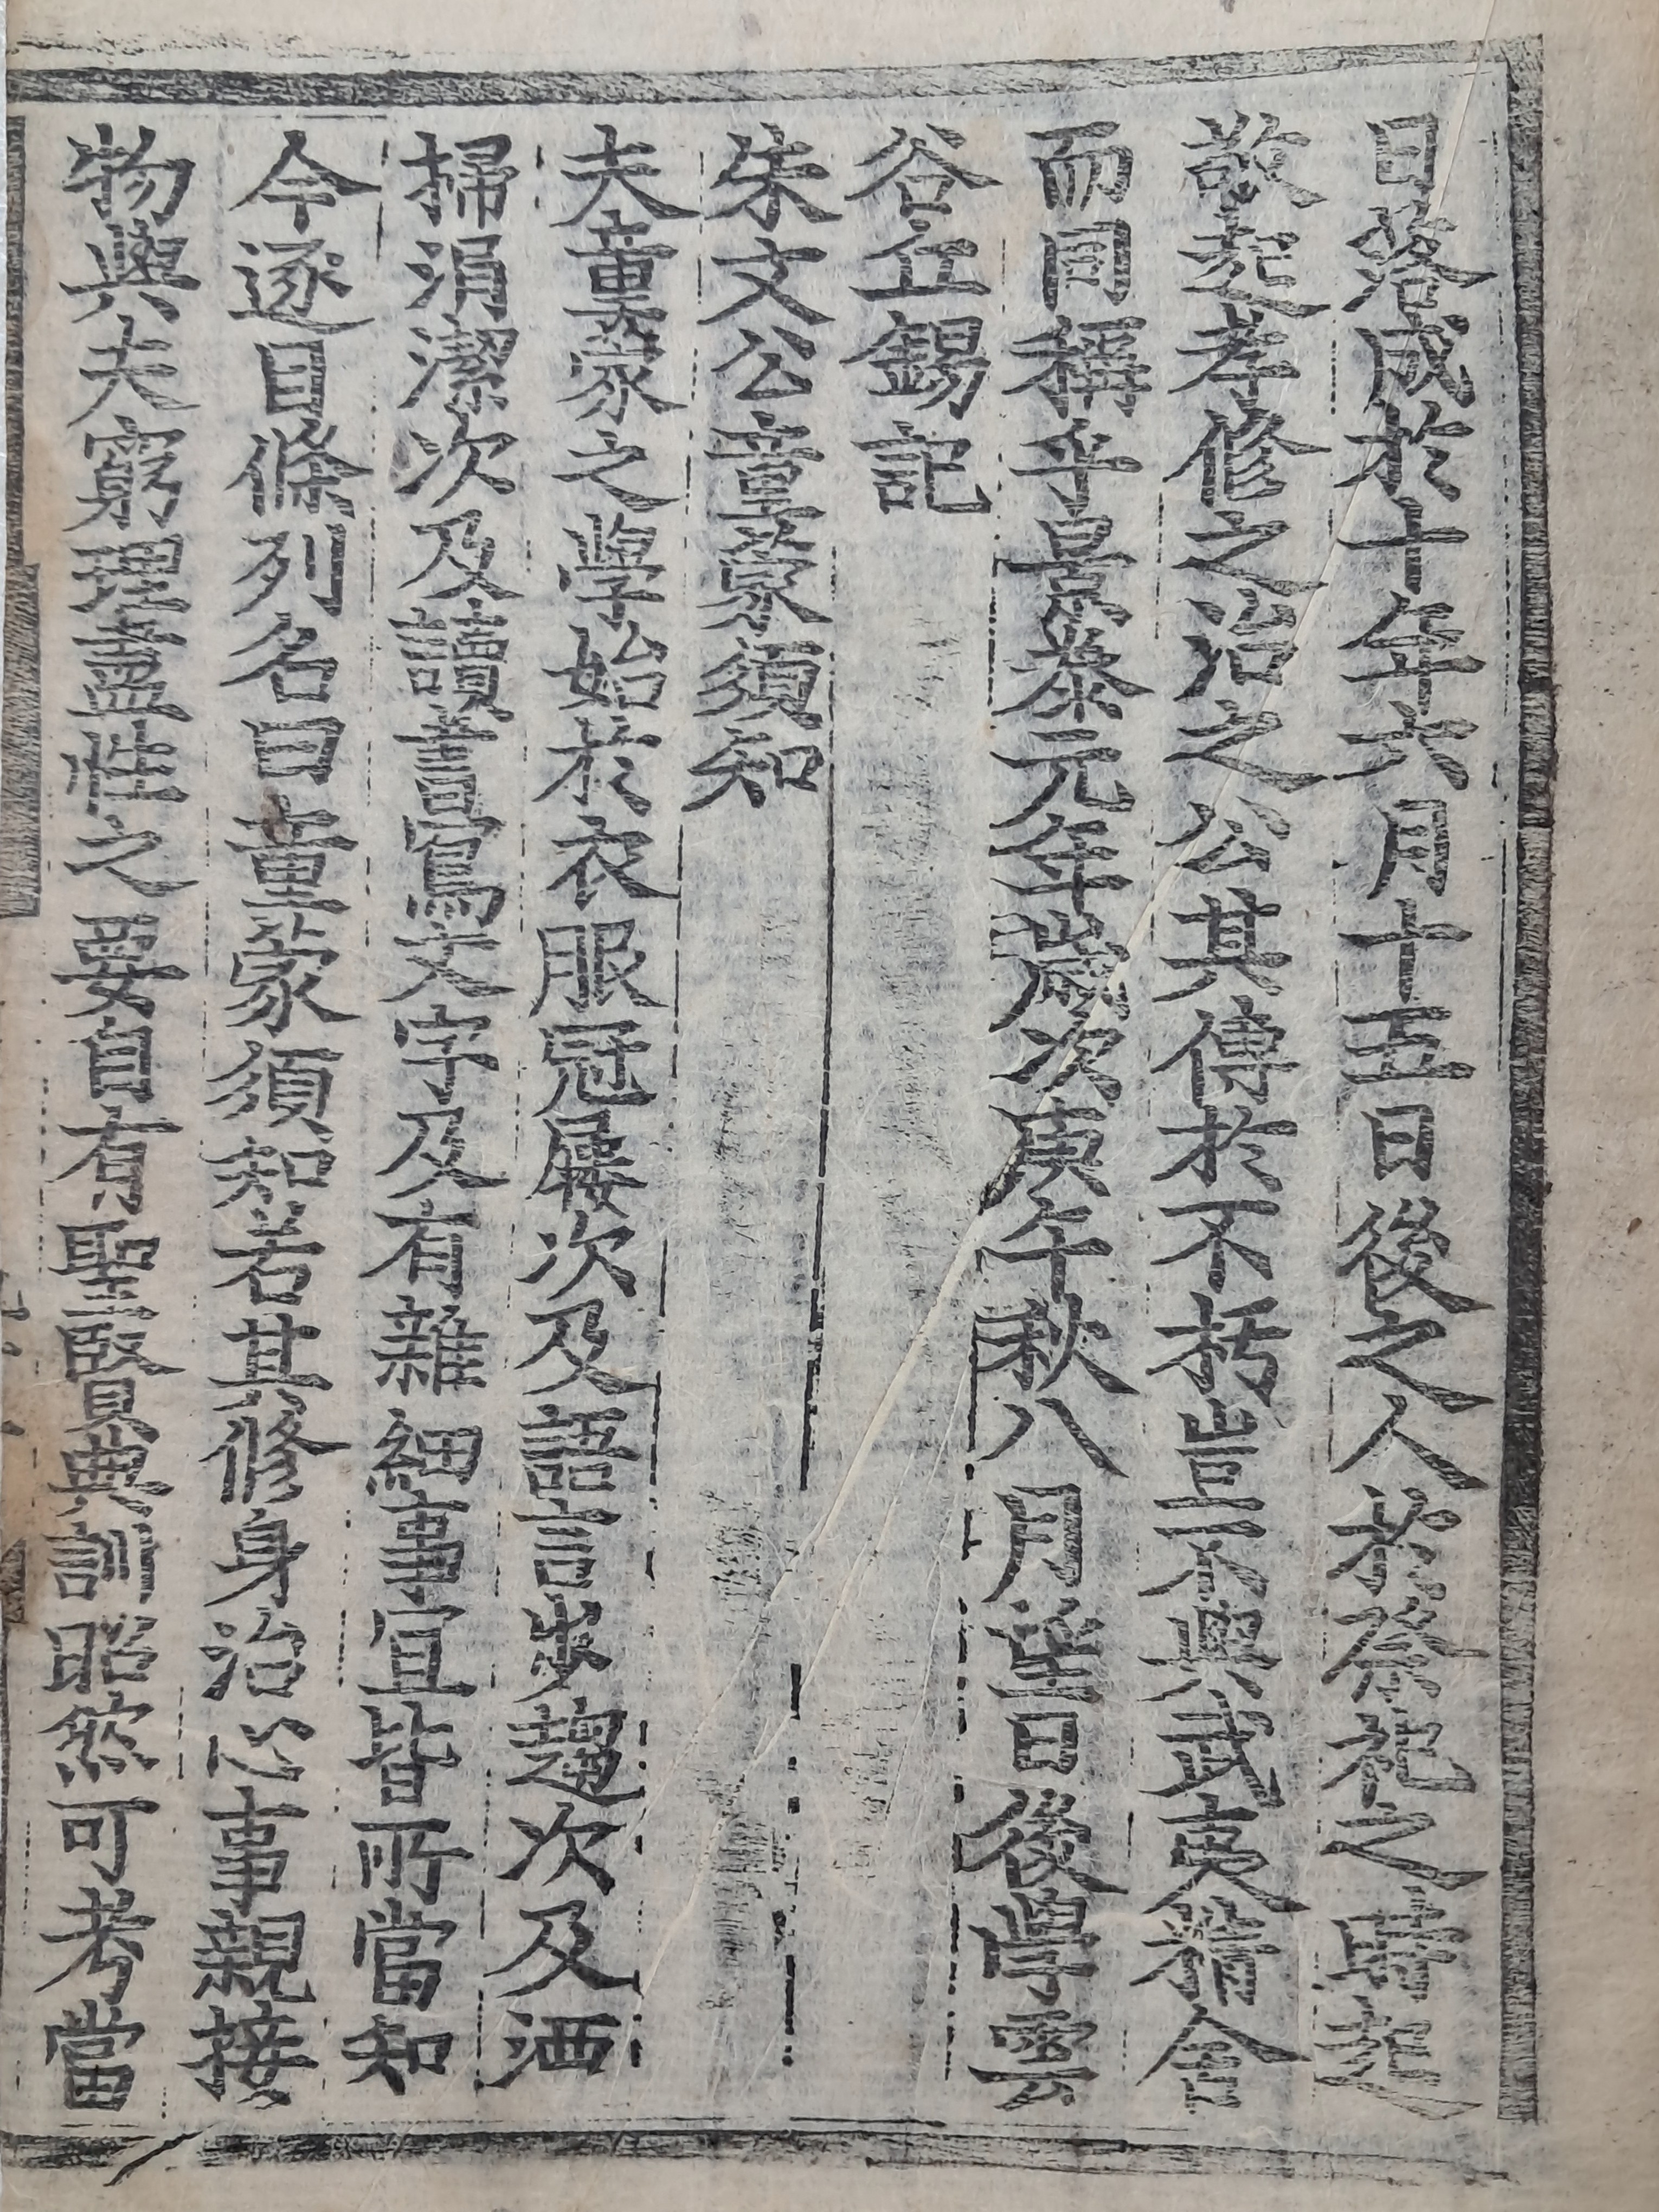 日落成於十年六月十五日後之人於祭祀之書起
敬起孝修之治之公其傳於不朽是亦與武夷精舍
而同稱乎景泰元年歲次庚午秋八月望日後學雲
谷丘錫記
朱文公童蒙須知
夫童蒙之學始於衣服冠屨次及語言步趨次及洒
掃涓潔次及讀書寫文字及有雜細事宜皆所當知
今逐目條列名曰童蒙須知若其修身治心事親接
物與夫窮理盡性之要自有聖賢典訓昭然可考當